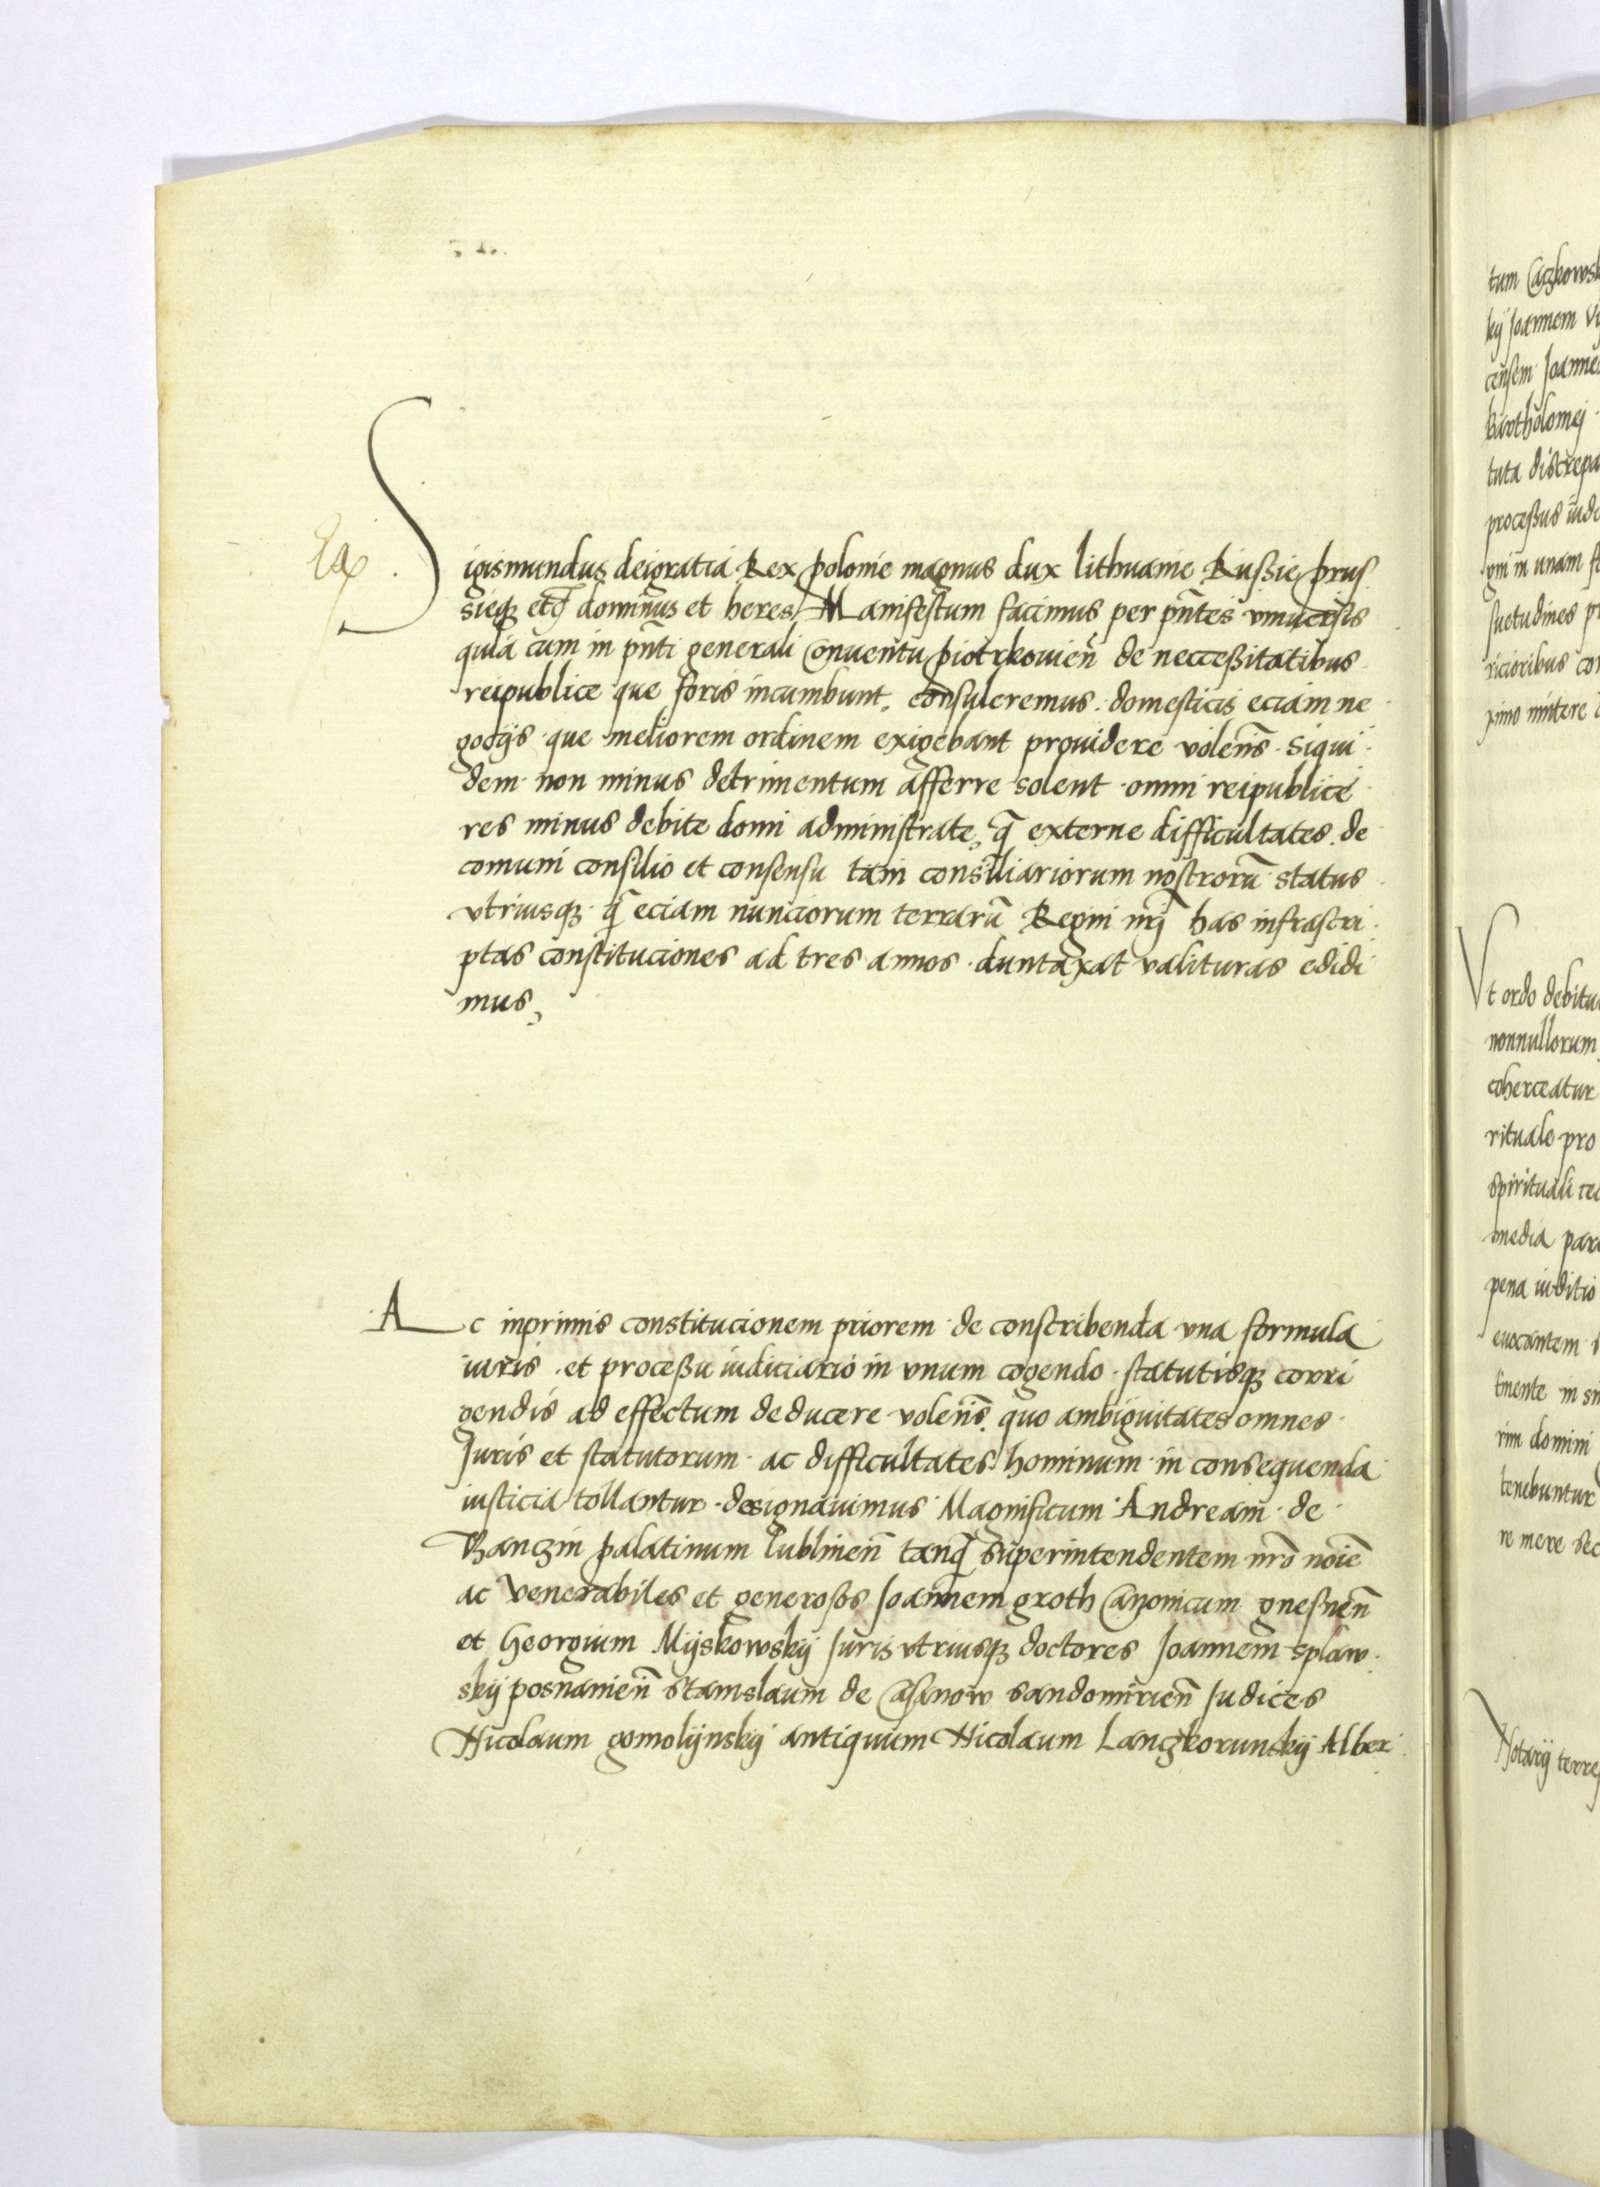 Ex
Sigismundus dei gratia Rex polonie magnus dux lithuanie Russie prus
sieq; etc̄ dominus et heres Manifestum facimus per pn̄tes vniuersis
quia cum in pn̄ti generali Conuentu piotrkouien̄ de neccessitatibus
reipublice que foris incumbunt, consuleremus. domesticis eciam ne
gocijs que meliorem ordinem exigebant prouidere volen̄s. siqui
dem non minus detrimentum afferre solent omni reipublice
res minus debite domi administrate, q̄ externe difficultates. de
comuni consilio et consensu tam consiliariorum nostrorū status
vtriusq; q̄ eciam nunciorum terrarū Regni nr̄j has infrascri
ptas constituciones ad tres annos duntaxat valituras edidi
mus,
Ac inprimis constitucionem priorem de conscribenda vna formula
iuris et processu iudiciario in vnum cogendo statutisq; corri
gendis ad effectum deducere volen̄s. quo ambiguitates omnes
Juris et statutorum ac difficultates hominum in consequenda
iusticia tollantur designauimus Magnificum Andream de
Thanczin palatinum lublinen̄ tanq̄ superintendentem nr̄o noīe
ac venerabiles et generosos Joannem groth Canonicum gnesnen̄
et Georgium Mijskowskij Juris vtriusq; doctores Joannem splaw
skij posnanien̄ Stanislaum de Casinow sandomirien̄ Judices
Nicolaum gomolijnskij antiquum Nicolaum Lanczkorunskij Alber
tum
kij Joannem
censem
Bartholomej
tuta
processus
gni in unam
suetudines
ricioribus
ximo
Vt ordo
nonnullorum
coherceatur
rituale pro
spirituali
media
pena
euocantem
tinente in
rim domini
tenebuntur
re mere
Notarij